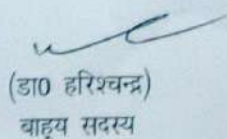 (डा0 हरिश्चन्द्र)
बाहय सदस्य